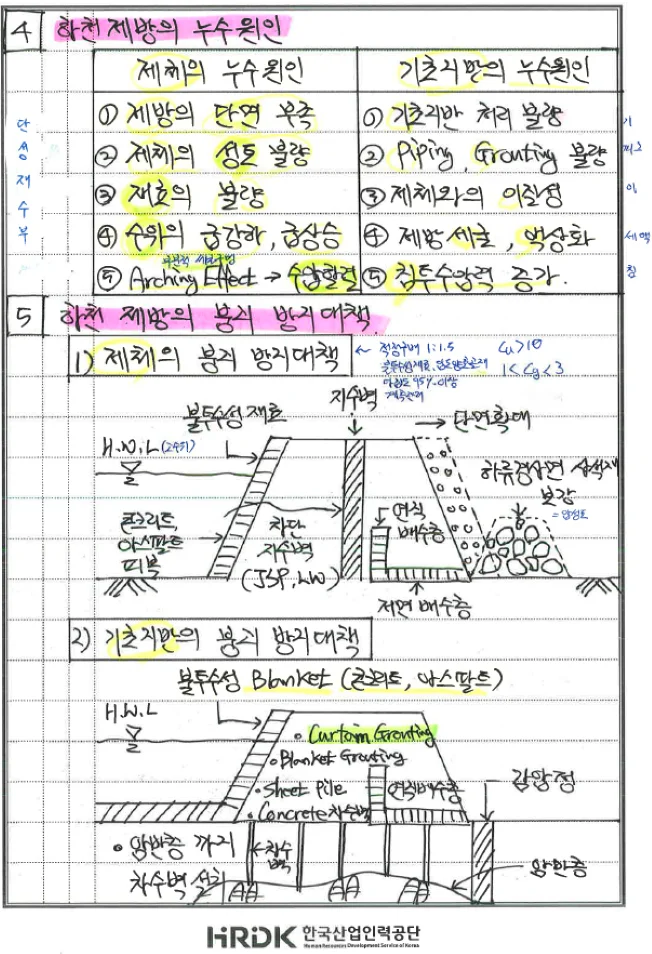 4 하천 제방의 누수원인
제체의 누수원인
기초지반의 누수원인
① 제방의 단면 부족
① 기초지반 처리 불량
② 제체의 성토 불량
② Piping, Grouting 불량
③ 재료의 불량
③ 제체와의 이질성
④ 수위의 급강하, 급상승
④ 제방 세굴, 박상화
⑤ Arching Effect → 수압할렬
⑤ 침투수압력 증가.
단
성
재
수
부
기
이
세
침
5 하천 제방의 붕괴 방지대책
1) 제체의 붕괴 방지대책
← 적정구배 1:1.5
다짐도 95% 이상
Cu > 10
1 < Cg < 3
불투수성 재료
지수벽
→ 단면확대
H.W.L
하류경사면
보강
콘크리트,
아스팔트
피복
차단
지수벽
(JSP, LW)
연직
배수층
저면 배수층
2) 기초지반의 붕괴 방지대책
불투수성 Blanket (콘크리트, 아스팔트)
H.W.L
• Curtain Grouting
• Blanket Grouting
• Sheet Pile
• Concrete 차수벽
연직배수층
감압정
• 암반층 까지
차수벽 설치
차수
벽
암반층
HRDK 한국산업인력공단
Human Resources Development Service of Korea